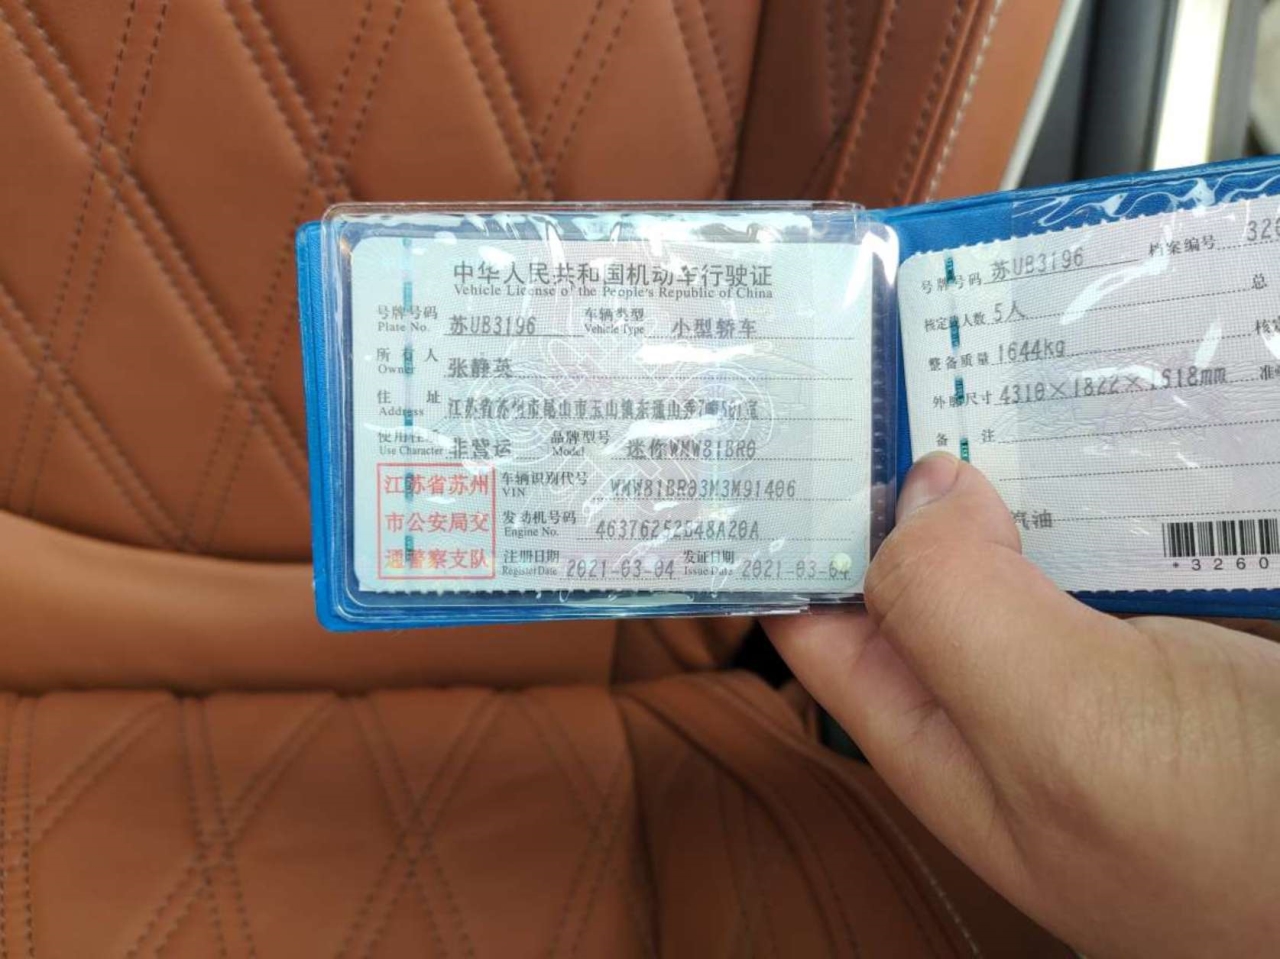 中华人民共和国机动车行驶证
Vehicle License of the People's Republic of China
号牌号码 苏UB3196 车辆类型 小型轿车
Plate No. Vehicle Type
所有人 张静英
Owner
住 址 江苏省苏州市昆山市玉山镇东
Address
使用性质 非营运 品牌型号 迷你WMW81BR0
Use Character Model
江苏省苏州
市公安局交
通警察支队
车辆识别代号 WMW81BR03M3M91406
VIN
发动机号码
Engine No.
注册日期 2021-03-04 发证日期 2021-03-04
Register Date Issue Date
号牌号码 苏UB3196 档案编号 32
核定载人数 5人 总
整备质量 1644kg 核
外廓尺寸 4310×1822×1518mm 准
备 注
汽油
*3260